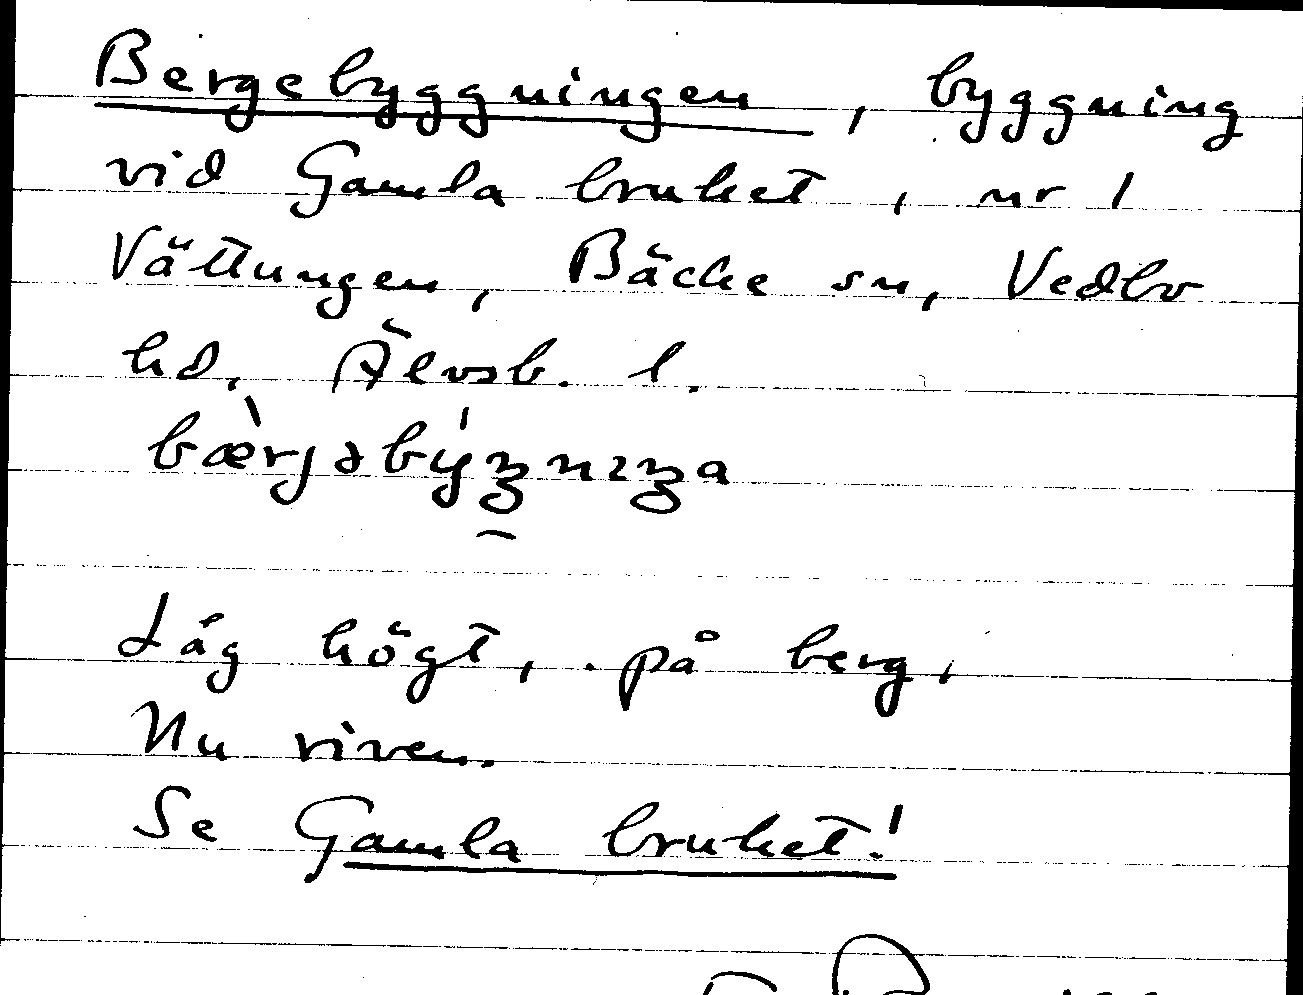 Bergebyggningen, byggning
vid Gamla bruket, nr 1
Vättungen, Bäcke sn, Vedbo
hd, Älvsb. l.
bæ̀rjəbýʒnıʒa
Låg högt, på berg,
Nu riven.
Se Gamla bruket!